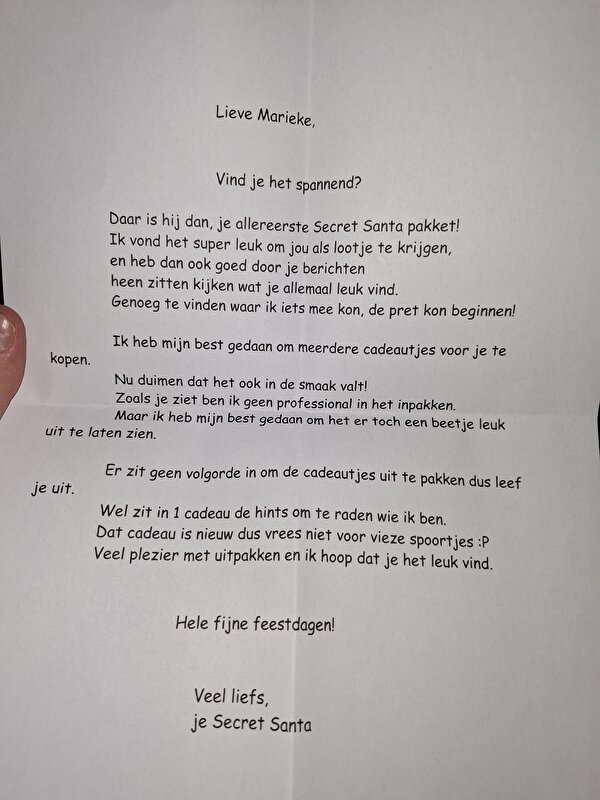 Lieve Marieke,
Vind je het spannend?
Daar is hij dan, je allereerste Secret Santa pakket!
Ik vond het super leuk om jou als lootje te krijgen,
en heb dan ook goed door je berichten
heen zitten kijken wat je allemaal leuk vind.
Genoeg te vinden waar ik iets mee kon, de pret kon beginnen!
Ik heb mijn best gedaan om meerdere cadeautjes voor je te
kopen.
Nu duimen dat het ook in de smaak valt!
Zoals je ziet ben ik geen professional in het inpakken.
Maar ik heb mijn best gedaan om het er toch een beetje leuk
uit te laten zien.
Er zit geen volgorde in om de cadeautjes uit te pakken dus leef
je uit.
Wel zit in 1 cadeau de hints om te raden wie ik ben.
Dat cadeau is nieuw dus vrees niet voor vieze spoortjes :P
Veel plezier met uitpakken en ik hoop dat je het leuk vind.
Hele fijne feestdagen!
Veel liefs,
je Secret Santa